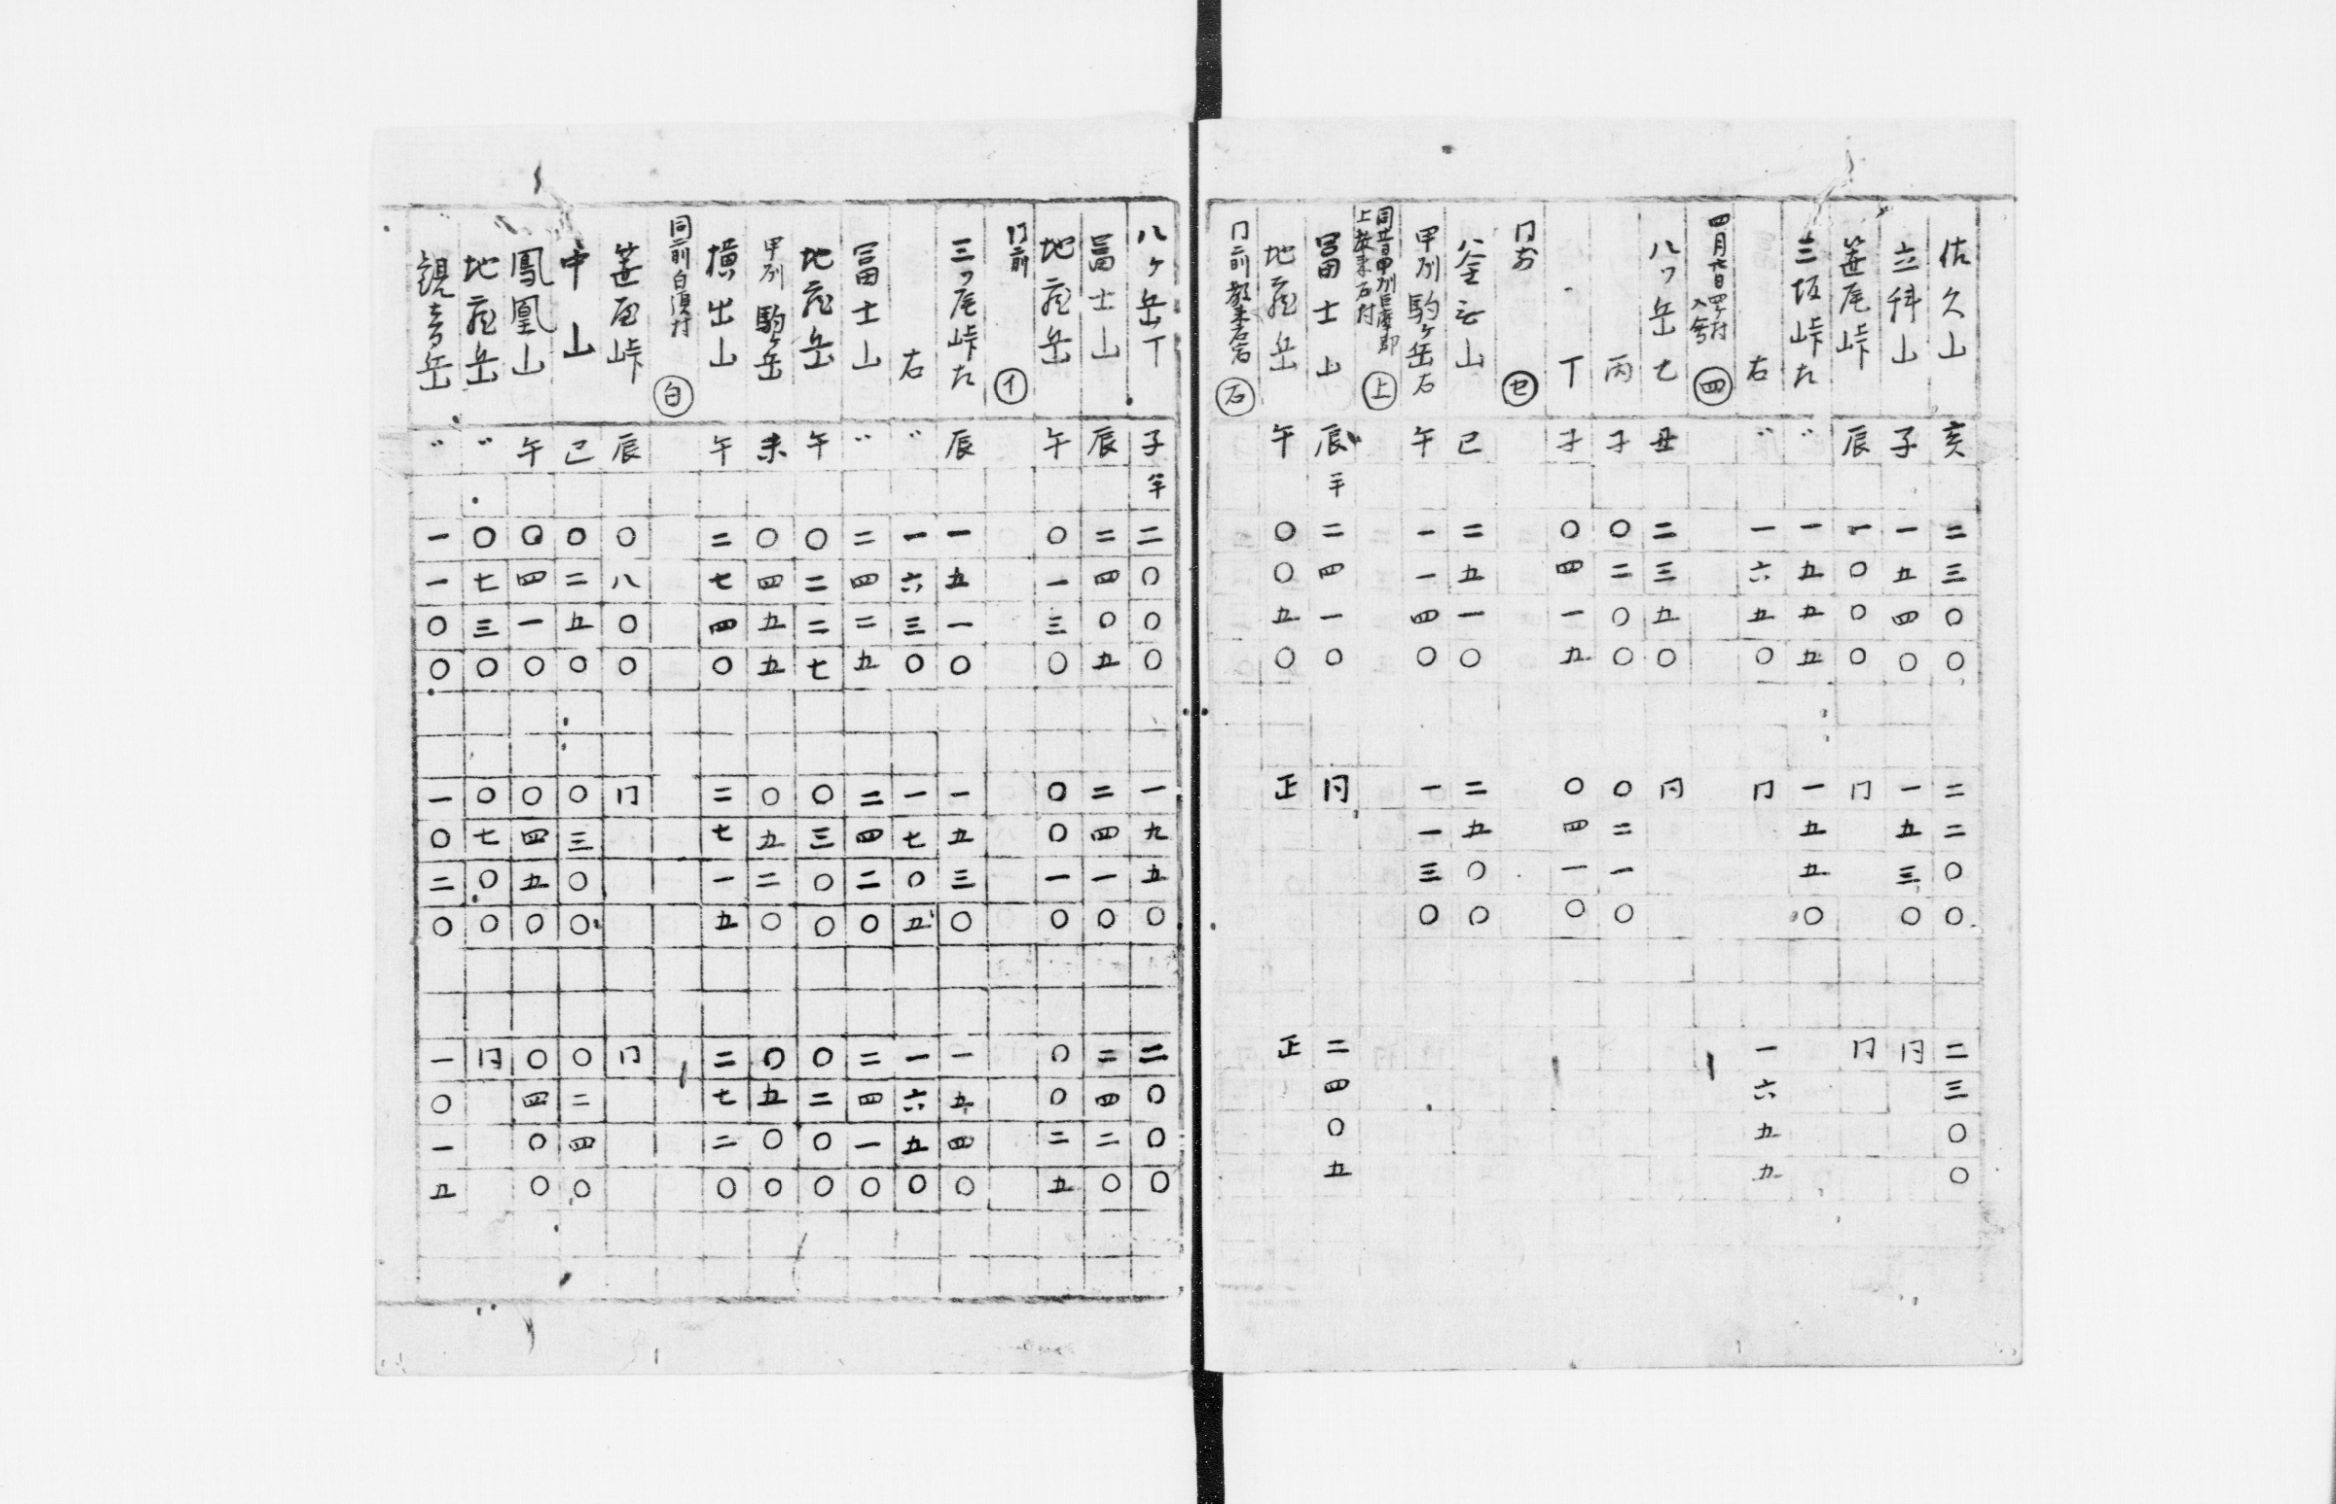 佐久山 亥 二三〇〇 二二〇〇 二三〇〇
立科山 子 一五四〇 一五三〇 同
笹尾峠 辰 一〇〇〇 同 同
三坂峠左 〃 一五五五 一五五〇
右 〃 一六五〇 同 一六五五
四月六日 四ケ村 入会 四
八ツ岳七 丑 二三五〇 同
丙 子 〇二〇〇 〇二一〇
丁 子 〇四一五 〇四一〇
同所 セ
釜無山 巳 二五一〇 二五〇〇
甲州駒ヶ岳石 午 一一四〇 一一三〇
同廿日甲州巨摩郡 上教来石村 上
冨士山 辰半 二四一〇 同 二四〇五
地蔵岳 午 〇〇五〇 正 正
同前教来石宿 石
八ヶ岳丁 子半 二〇〇〇 一九五〇 二〇〇〇
冨士山 辰 二四〇五 二四一〇 二四二〇
地蔵岳 午 〇一三〇 〇〇一〇 〇〇二五
同前 イ
三ツ尾峠左 辰 一五一〇 一五三〇 一五四〇
右 〃 一六三〇 一七〇五 一六五〇
冨士山 〃 二四二五 二四二〇 二四一〇
地蔵岳 午 〇二二七 〇三〇〇 〇二〇〇
甲州駒ヶ岳 未 〇四五五 〇五二〇 〇五〇〇
横出山 午 二七四〇 二七一五 二七二〇
同前白須村 白
笹尾峠 辰 〇八〇〇 同 同
中山 巳 〇二五〇 〇三〇〇 〇二四〇
鳳凰山 午 〇四一〇 〇四五〇 〇四〇〇
地蔵岳 〃 〇七三〇 〇七〇〇 同
観音岳 〃 一一〇〇 一〇二〇 一〇一五